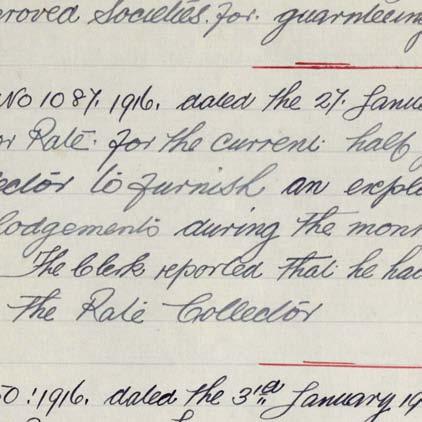 proved Societies. for. guarnteeing
No 1087. 1916. dated the 27. Janu
or Rate. for the current. half
lector to furnish an expla
lodgements during the mon
The Clerk reported that he had
the Rate Collector
50:1916. dated the 3rd January 19